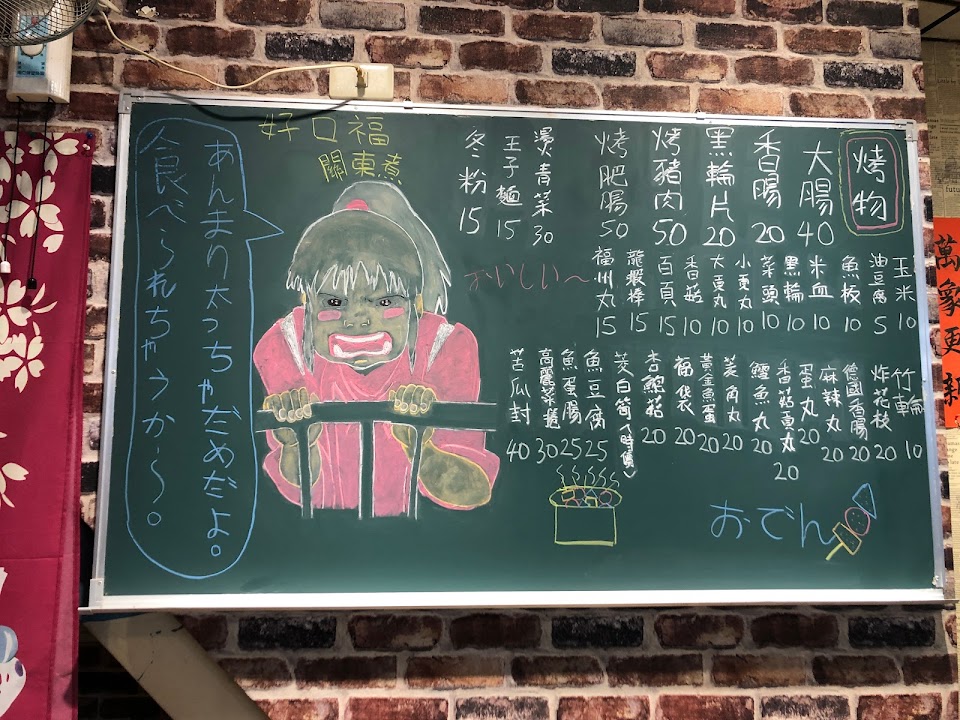 あんまり太っちゃだめだよ。
食べられちゃうから〜。
好口福
關東煮
烤物
大腸 40
香腸 20
黑輪片 20
烤豬肉 50
烤肥腸 50
燙青菜 30
王子麵 15
冬粉 15
玉米 10
油豆腐 5
魚板 10
米血 10
黑輪 10
菜頭 10
小貢丸 10
大貢丸 10
香菇 10
百頁 15
龍蝦棒 15
福州丸 15
おいしい〜
竹輪 10
炸花枝 20
德國香腸 20
麻辣丸 20
蛋丸 20
香菇貢丸 20
鱈魚丸 20
菱角丸 20
黃金魚蛋 20
福袋 20
杏鮑菇 20
茭白筍(時價)
魚豆腐 25
魚蛋腸 25
高麗菜捲 30
苦瓜封 40
おでん
萬象更新